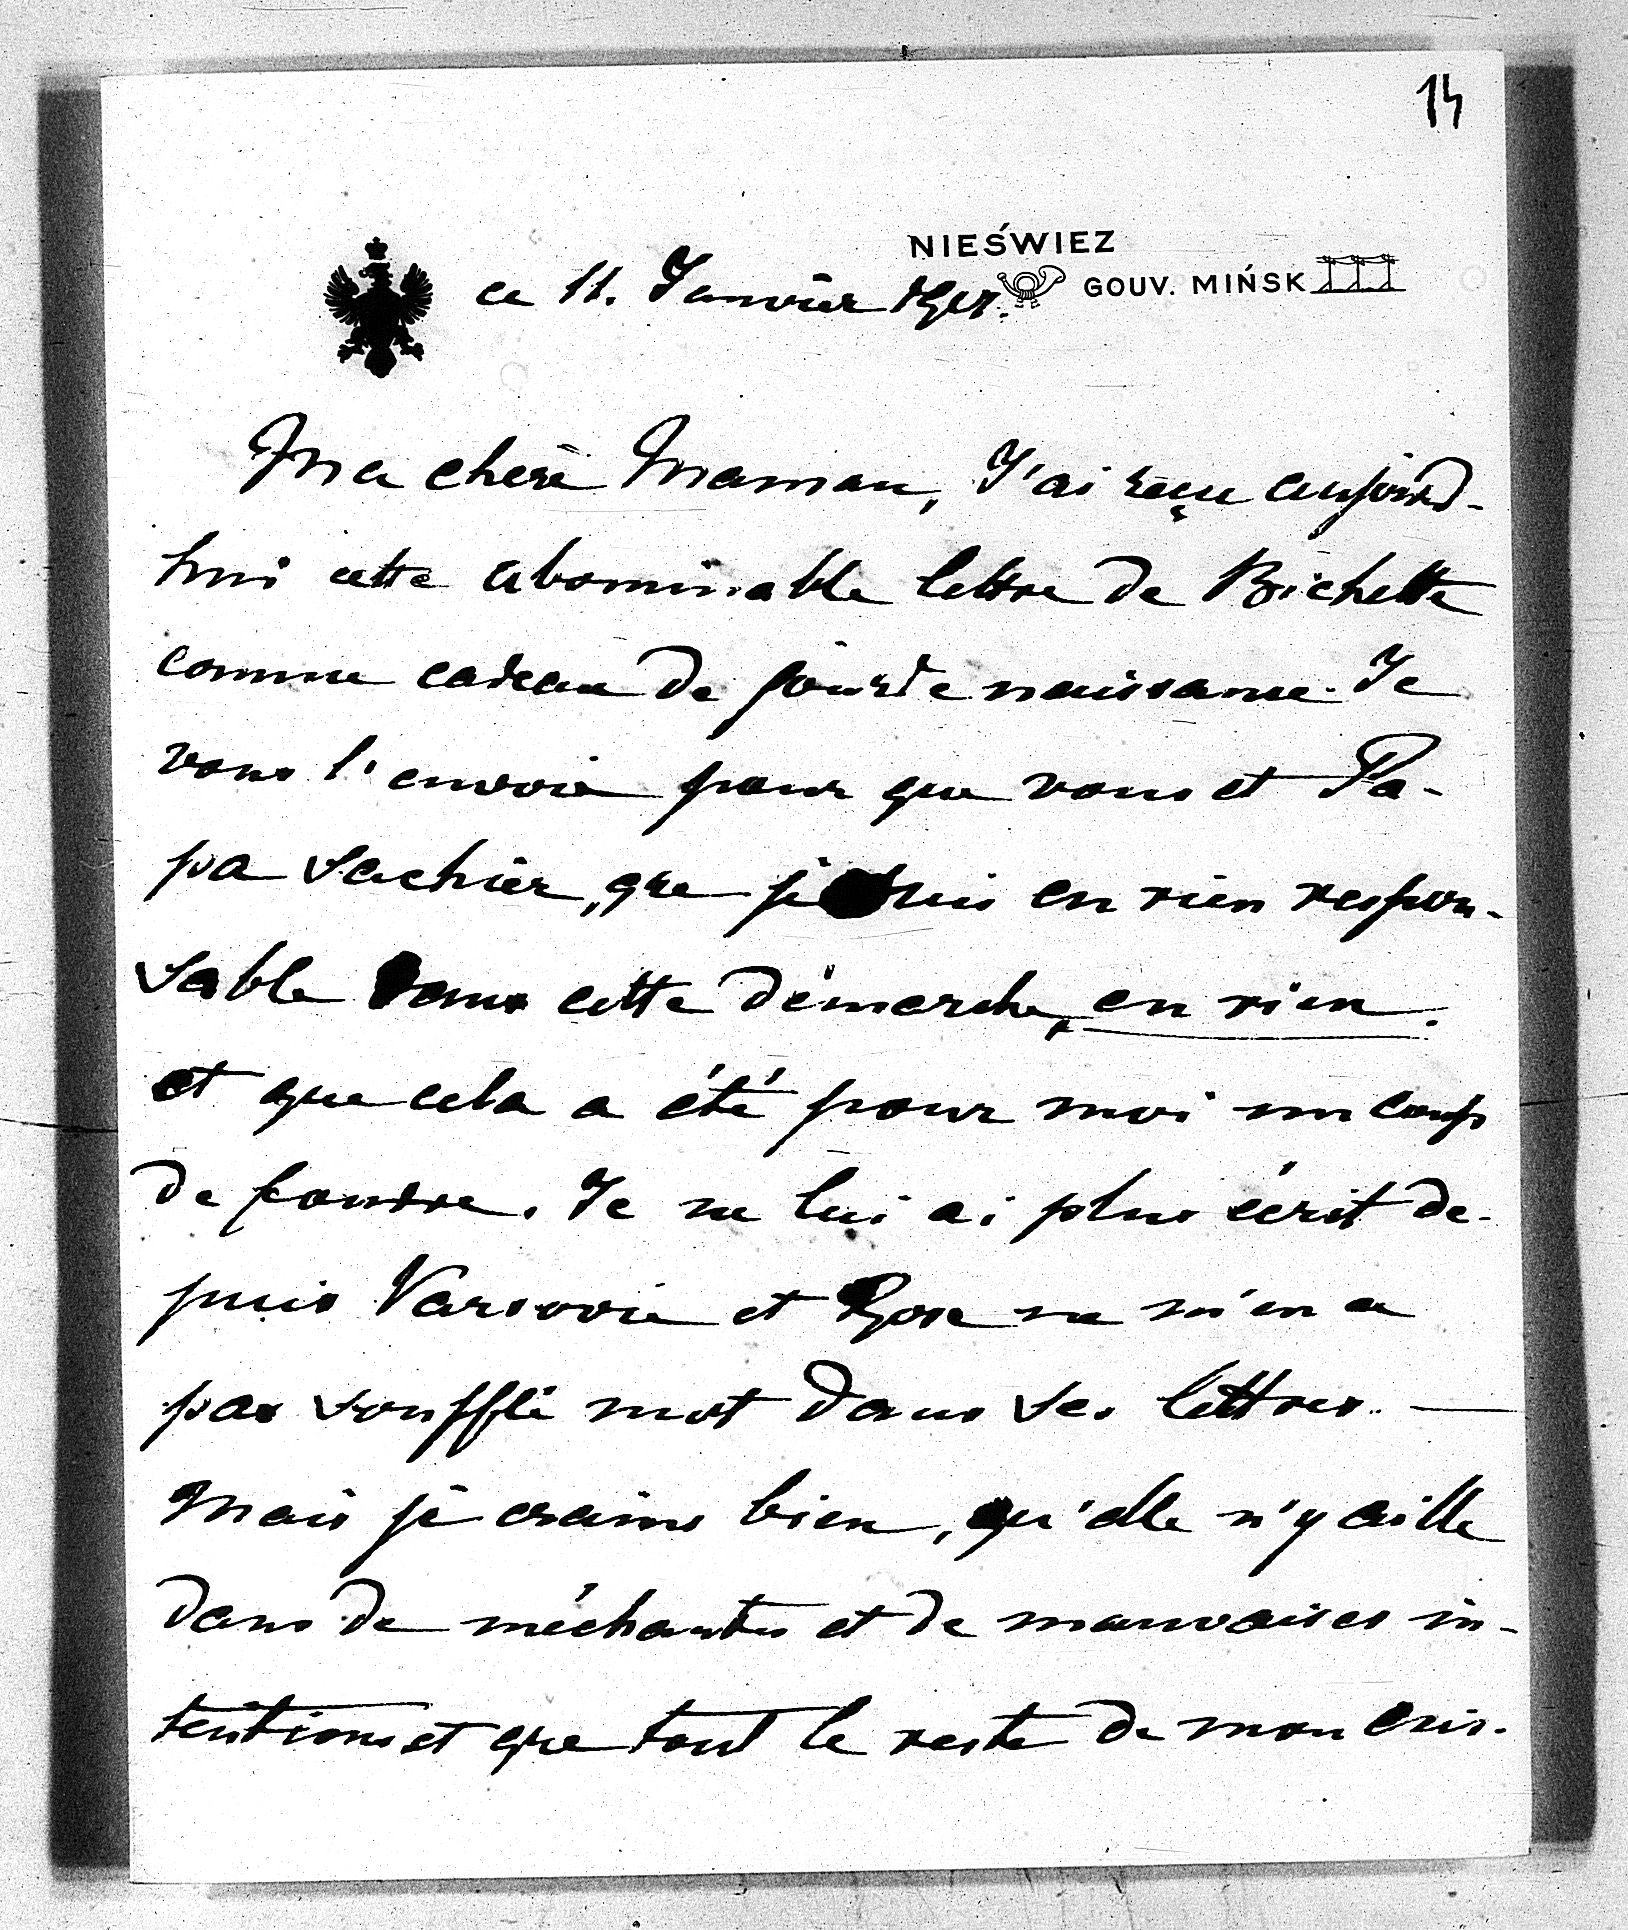 14
NIEŚWIEZ
GOUV. MIŃSK
ce 11. Janvier
Ma chère Maman, J'ai reçu aujourd-
hui cette abominable lettre de Bichette
comme cadeau de jour de naissance. Je
vous l'envoie pour que vous et Pa-
pa sachier, que je suis en rien respon-
sable dans cette démarche, en rien.
et que cela a été pour moi un coup
de foudre. Je ne lui ai plus écrit de-
puis Varsovie et Rose ne m'en a
pas soufflé mot dans ses lettres. —
Mais je crains bien, qu'elle n'y aille
dans de méchantes et de mauvaises in-
tentions et que tout le reste de mon exis-